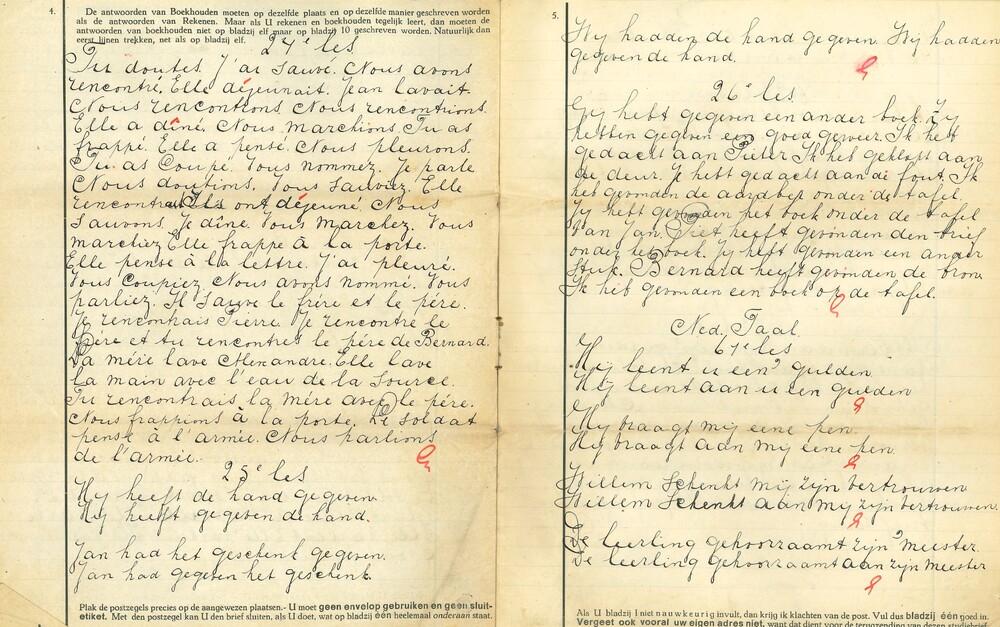 4.
De antwoorden van Boekhouden moeten op dezelfde plaats en op dezelfde manier geschreven worden
als de antwoorden van Rekenen. Maar als U rekenen en boekhouden tegelijk leert, dan moeten de
antwoorden van boekhouden niet op bladzij elf maar op bladzij 10 geschreven worden. Natuurlijk dan
eerst lijnen trekken, net als op bladzij elf.
24e les
Tu doutes. J'ai sauvé. Nous avons
rencontré. Elle déjeunait. Jean lavait.
Nous rencontrons. Nous rencontrions.
Elle a dîné. Nous marchions. Tu as
frappé. Elle a pensé. Nous pleurons.
Tu as coupé. Vous nommez. Je parle
Nous doutions. Vous sauviez. Elle
rencontrait. Ils ont déjeuné. Nous
sauvons. Je dîne. Vous marchez. Vous
marchiez. Elle frappe à la porte.
Elle pense à la lettre. J'ai pleuré.
Vous coupiez. Nous avons nommé. Vous
parliez. Il sauve le frère et le père.
Je rencontrais Pierre. Je rencontre le
père et tu rencontres le père de Bernard.
La mère lave Alexandre. Elle lave
la main avec l'eau de la source.
Tu rencontrais la mère avec le père.
Nous frappions à la porte. Le soldat
pense à l'armée. Nous parlions
de l'armée.
25e les
Hy heeft de hand gegeven.
Hy heeft gegeven de hand.
Jan had het geschenk gegeven.
Jan had gegeven het geschenk.
Plak de postzegels precies op de aangewezen plaatsen.- U moet geen envelop gebruiken en geen sluit-
etiket. Met den postzegel kan U den brief sluiten, als U doet, wat op bladzij één heelemaal onderaan staat.
5.
Wy hadden de hand gegeven. Wy hadden
gegeven de hand.
26e les
Gy hebt gegeven een ander boek. Zy
hebben gegeven een goed geweer. Ik heb
gedacht aan Pieter. Ik heb geklopt aan
de deur. Je hebt gedacht aan de fout. Ik
heb gevonden de aardbei onder de tafel.
Gy hebt gevonden het boek onder de tafel
van Jan. Piet heeft gevonden den brief
onder het boek. Gy heft gevonden een ander
stuk. Bernard heeft gevonden de bron.
Ik heb gevonden een boek op de tafel.
Ned. Taal.
61e les
Hy leent u een gulden
Hy leent aan u een gulden
Hy vraagt my eene pen.
Hy vraagt aan my eene pen.
Willem schenkt my zyn vertrouwen
Willem schenkt aan my zyn vertrouwen.
De leerling gehoorzaamt zyn meester.
De leerling gehoorzaamt aan zyn meester
Als U bladzij I niet nauwkeurig invult, dan krijg ik klachten van de post. Vul dus bladzij één goed in.
Vergeet ook vooral uw eigen adres niet, want dat dient voor de terugzending van dezen studiebrief.